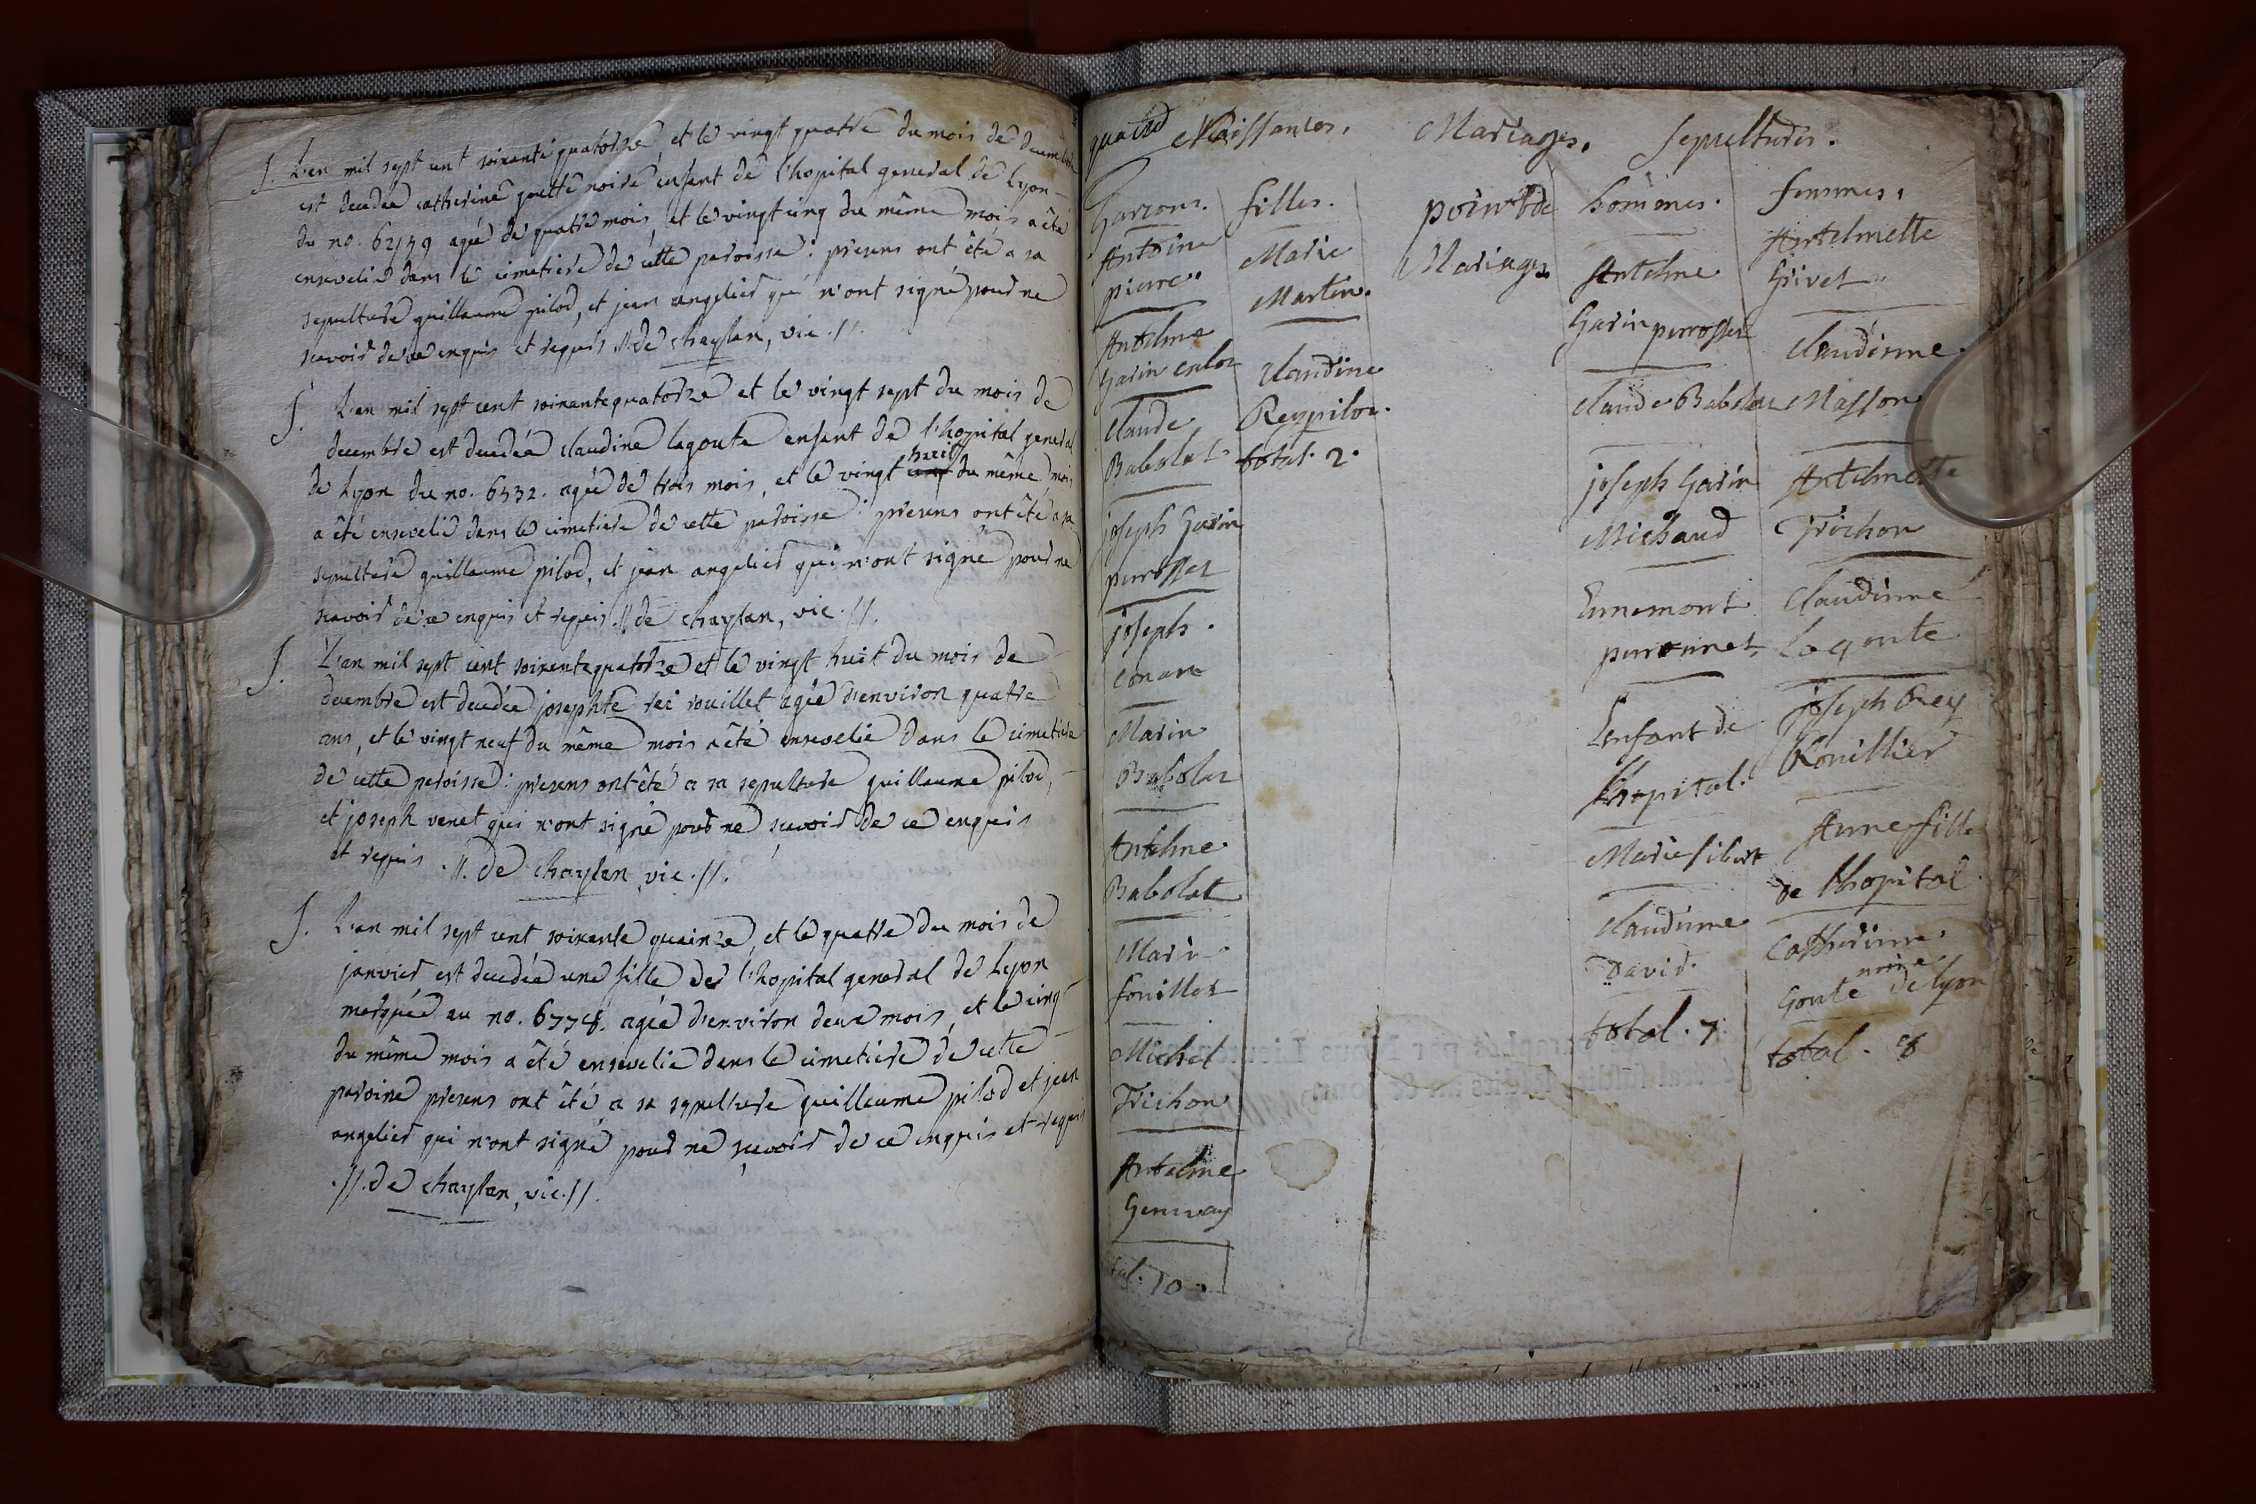 S. L'an mil sept cent soixante quatorze, et le vingt quatre du mois de decembre
est decedée catherine goutte noire enfant de l'hopital general de Lyon
du no. 62159 agée de quatre mois, et le vingt cinq du même mois a été
ensevelie dans le cimetiere de cette paroisse: presens ont été a sa
sepulture guillaume pilod, et jean angelier qui n'ont signé pour ne
scavoir de ce enquis et requis .//. de chaylan, vic .//.
S. L'an mil sept cent soixante quatorze et le vingt sept du mois de
decembre est decedée claudine lagoute enfant de l'hopital general
de Lyon du no. 6532. agée de trois mois, et le vingt huit du même mois
a été ensevelie dans le cimetiere de cette paroisse: presens ont été a sa
sepulture guillaume pilod, et jean angelier qui n'ont signé pour ne
scavoir de ce enquis et requis .//. de chaylan, vic .//.
S. L'an mil sept cent soixante quatorze et le vingt huit du mois de
decembre est decedée josephte rei rouillet agée d'environ quatre
ans, et le vingt neuf du même mois a été ensevelie dans le cimetiere
de cette paroisse: presens ont été a sa sepulture guillaume pilod,
et joseph venet qui n'ont signé pour ne scavoir de ce enquis
et requis .//. de chaylan, vic .//.
S. L'an mil sept cent soixante quinze, et le quatre du mois de
janvier est decedée une fille de l'hopital general de Lyon
marquée au no. 6778. agée d'environ deux mois, et le cinq
du même mois a été ensevelie dans le cimetiére de cette
paroisse presens ont été a sa sepulture guillaume pilod et jean
angelier qui n'ont signé pour ne scavoir de ce enquis et requis
.//. de chaylan, vic .//.
Naissances.
Garcons.
Antoine
pierre.
Antelme
Garin
claude
Babolat.
joseph Garin
perrosset
joseph.
conan
Marin
Babolat
Antelme
Babolat
Marin
fouillet
Michel
Trichon
Antelme
Genevay
10.
filles.
Marie
Martin.
claudine
Reypilon.
total. 2.
Mariages.
point de
Mariages
sepultures.
hommes.
Antelme
Garin perrosset
claude Babolat
joseph Garin
Michaud
Ennemont
perronnet
Lenfant de
Lhopital.
Marie sibert
claudinne
David.
total. 7
femmes.
Antelmette
Grivet
claudinne
Masson
Antelmette
Trichon
claudinne
Lagoute
joseph Rey
Rouillier
Anne fille
de Lhopital
Catherinne
Goute noire de lyon
total. 8